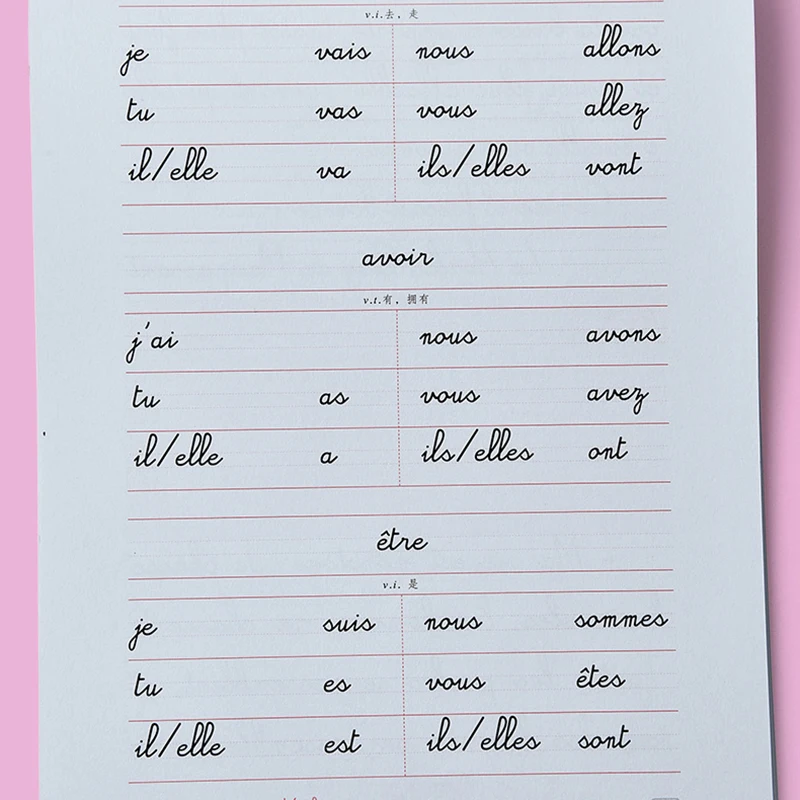 v.i.去，走
je vais nous allons
tu vas vous allez
il/elle va ils/elles vont
avoir
v.t.有，拥有
j'ai nous avons
tu as vous avez
il/elle a ils/elles ont
être
v.i. 是
je suis nous sommes
tu es vous êtes
il/elle est ils/elles sont